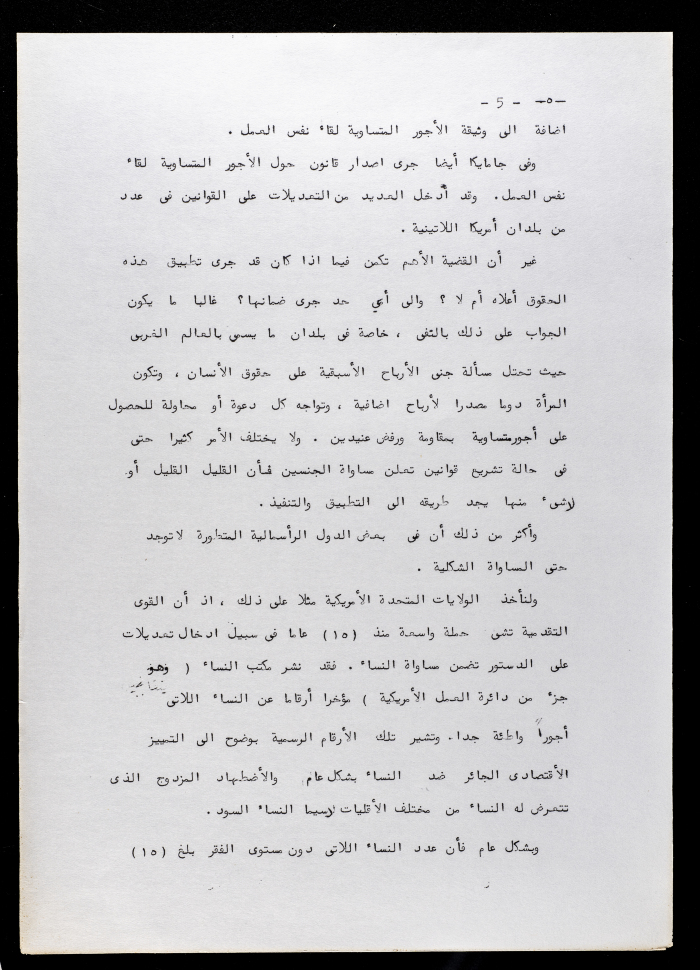 -٥- - 5 -
اضافة الى وثيقة الأجور المتساوية لقاء نفس العمل .
وفى جامايكا أيضا جرى اصدار قانون حول الأجور المتساوية لقاء
نفس العمل. وقد أدخل العديد من التعديلات على القوانين فى عدد
من بلدان أمريكا اللاتينية .
غير أن القضية الأهم تكمن فيما اذا كان قد جرى تطبيق هذه
الحقوق أعلاه أم لا ؟ والى أى حد جرى ضمانها؟ غالبا ما يكون
الجواب على ذلك بالنفى ، خاصة فى بلدان ما يسمى بالعالم الغربى
حيث تحتل مسألة جنى الأرباح الأسبقية على حقوق الأنسان ، وتكون
المرأة دوما مصدرا لأرباح اضافية ، وتواجه كل دعوة أو محاولة للحصول
على أجور متساوية بمقاومة ورفض عنيدين . ولا يختلف الأمر كثيرا حتى
فى حالة تشريع قوانين تعلن مساواة الجنسين فأن القليل القليل أو
لاشىء منها يجد طريقه الى التطبيق والتنفيذ .
وأكثر من ذلك أن فى بعض الدول الرأسمالية المتطورة لا توجد
حتى المساواة الشكلية .
ولنأخذ الولايات المتحدة الأمريكية مثلا على ذلك ، اذ أن القوى
التقدمية تشن حملة واسعة منذ (١٥) عاما فى سبيل ادخال تعديلات
على الدستور تضمن مساواة النساء . فقد نشر مكتب النساء ( وهو
جزء من دائرة العمل الأمريكية ) مؤخرا أرقاما عن النساء اللاتى
أجوراً واطئة جدا. وتشير تلك الأرقام الرسمية بوضوح الى التمييز
الأقتصادى الجائر ضد النساء بشكل عام والأضطهاد المزدوج الذى
تتعرض له النساء من مختلف الأقليات لاسيما النساء السود .
وبشكل عام فأن عدد النساء اللاتى دون مستوى الفقر بلغ (١٥)